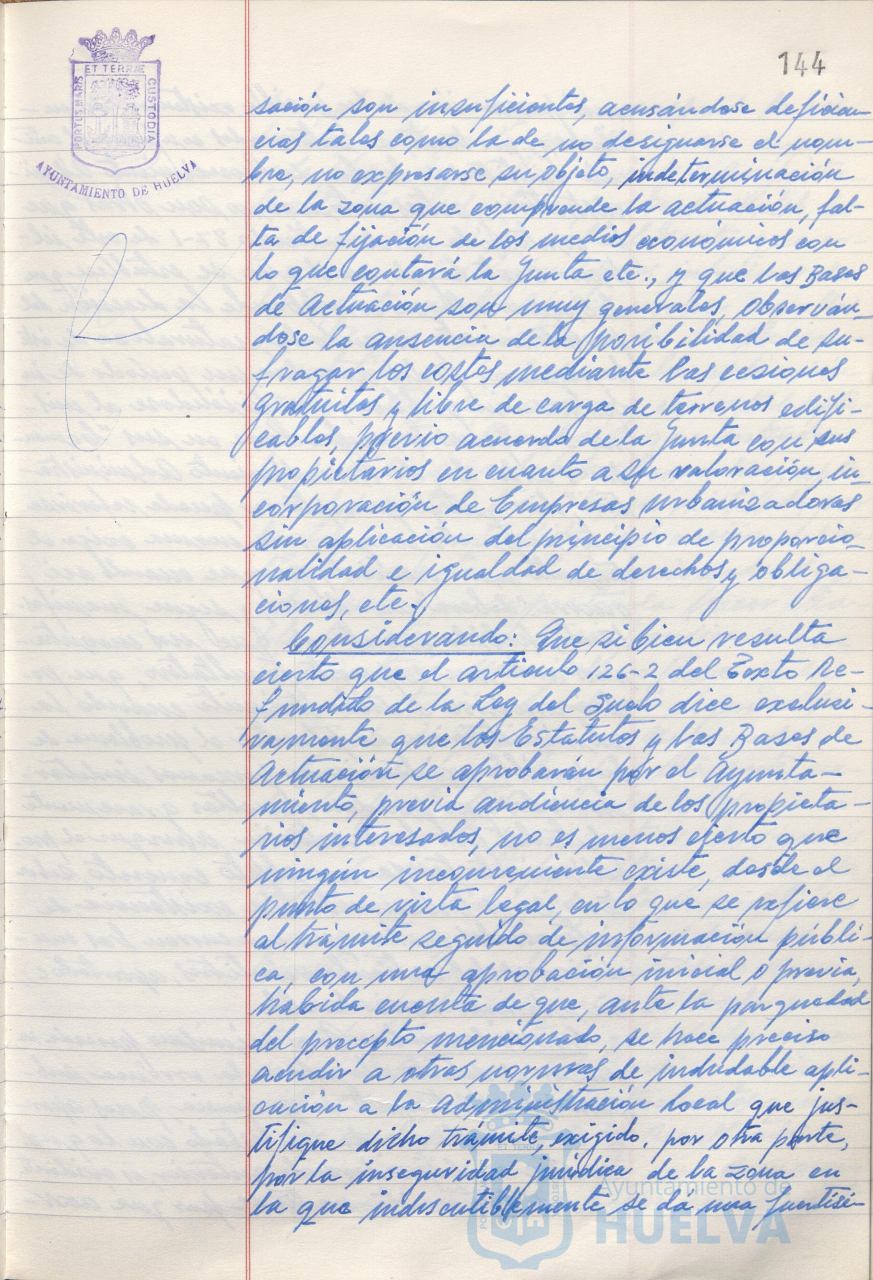 144
ET TERRAE
PORTUS MARIS
CUSTODIA
AYUNTAMIENTO DE HUELVA
sación son insuficientes, acusándose deficien-
cias tales como la de no designarse el nom-
bre, no expresarse su objeto, indeterminación
de la zona que comprende la actuación, fal-
ta de fijación de los medios económicos con
lo que contará la Junta etc., y que las Bases
de Actuación son muy generales, observán-
dose la ausencia de la posibilidad de su-
fragar los costes mediante las cesiones
gratuitas y libre de carga de terrenos edifi-
cables, previo acuerdo de la Junta con sus
propietarios en cuanto a su valoración, in-
corporación de Empresas urbanizadoras
sin aplicación del principio de proporcio-
nalidad e igualdad de derechos y obliga-
ciones, etc.
Considerando: Que si bien resulta
cierto que el artículo 126-2 del Texto Re-
fundido de la Ley del Suelo dice exclusi-
vamente que los Estatutos y las Bases de
Actuación se aprobarán por el Ayunta-
miento, previa audiencia de los propieta-
rios interesados, no es menos cierto que
ningún inconveniente existe, desde el
punto de vista legal, en lo que se refiere
al trámite seguido de información públi-
ca, con una aprobación inicial o previa,
habida cuenta de que, ante la parquedad
del precepto mencionado, se hace preciso
acudir a otras normas de indudable apli-
cación a la Administración Local que jus-
tifique dicho trámite, exigido. por otra parte,
por la inseguridad jurídica de la zona en
la que indiscutiblemente se da una fuertísi-
Ayuntamiento de
HUELVA